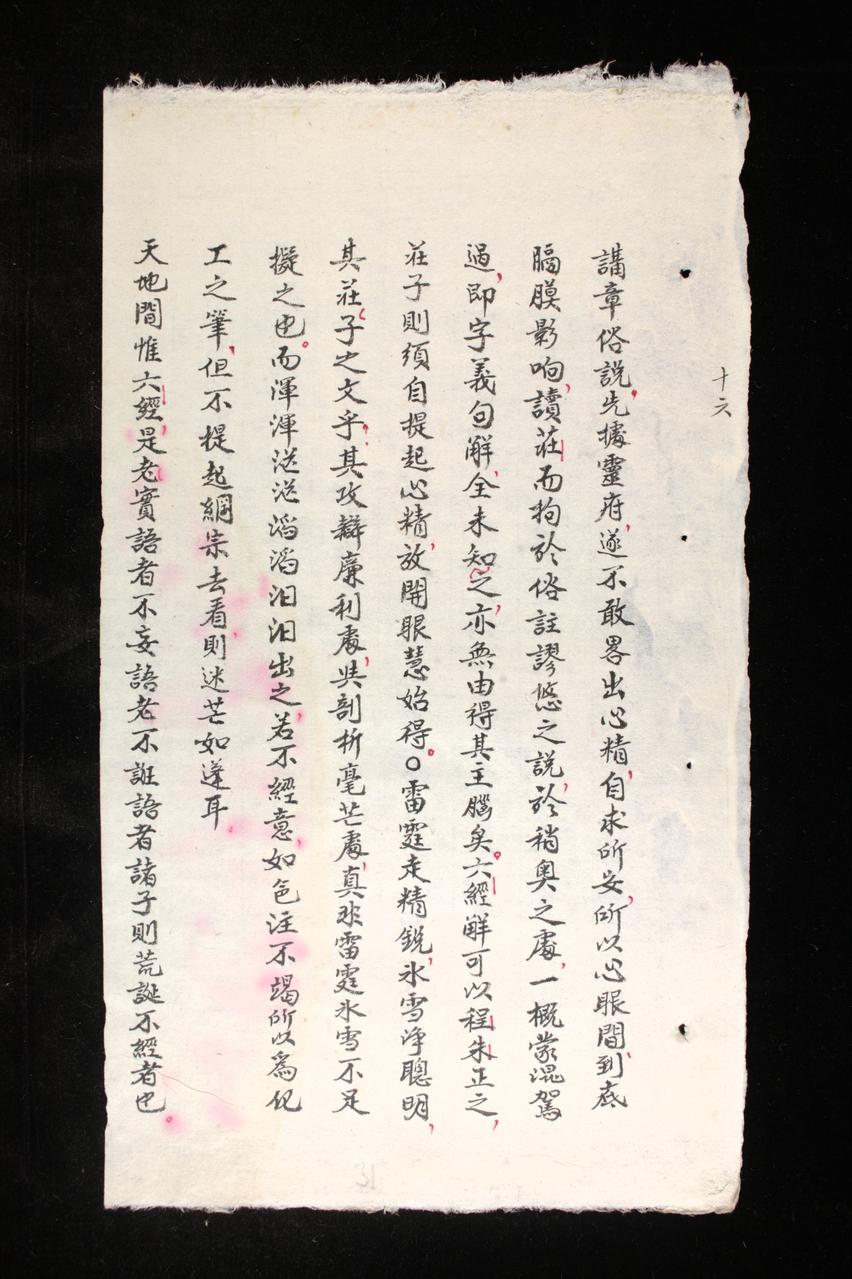 十六
講章俗說先據靈府遂不敢畧出心精自求所安所以心眼間到底
膈膜影响讀莊而拘於俗註謬悠之說於稍奥之處一概蒙混駕
過即字義句解全未知之亦無由得其主腦矣六經解可以程朱正之
莊子則須自提起心精放開眼慧始得○雷霆走精銳氷雪净聰明
其莊子之文乎其攻辯廉利處其剖析毫芒處真非雷霆氷雪不足
擬之也而渾渾送送滔滔汩汩出之若不經意如危注不竭所以為化
工之筆但不提起綱宗去看則迷茫如蓬耳
天地間惟六經是老實語者不妄語者不誑語者諸子則荒誕不經者也